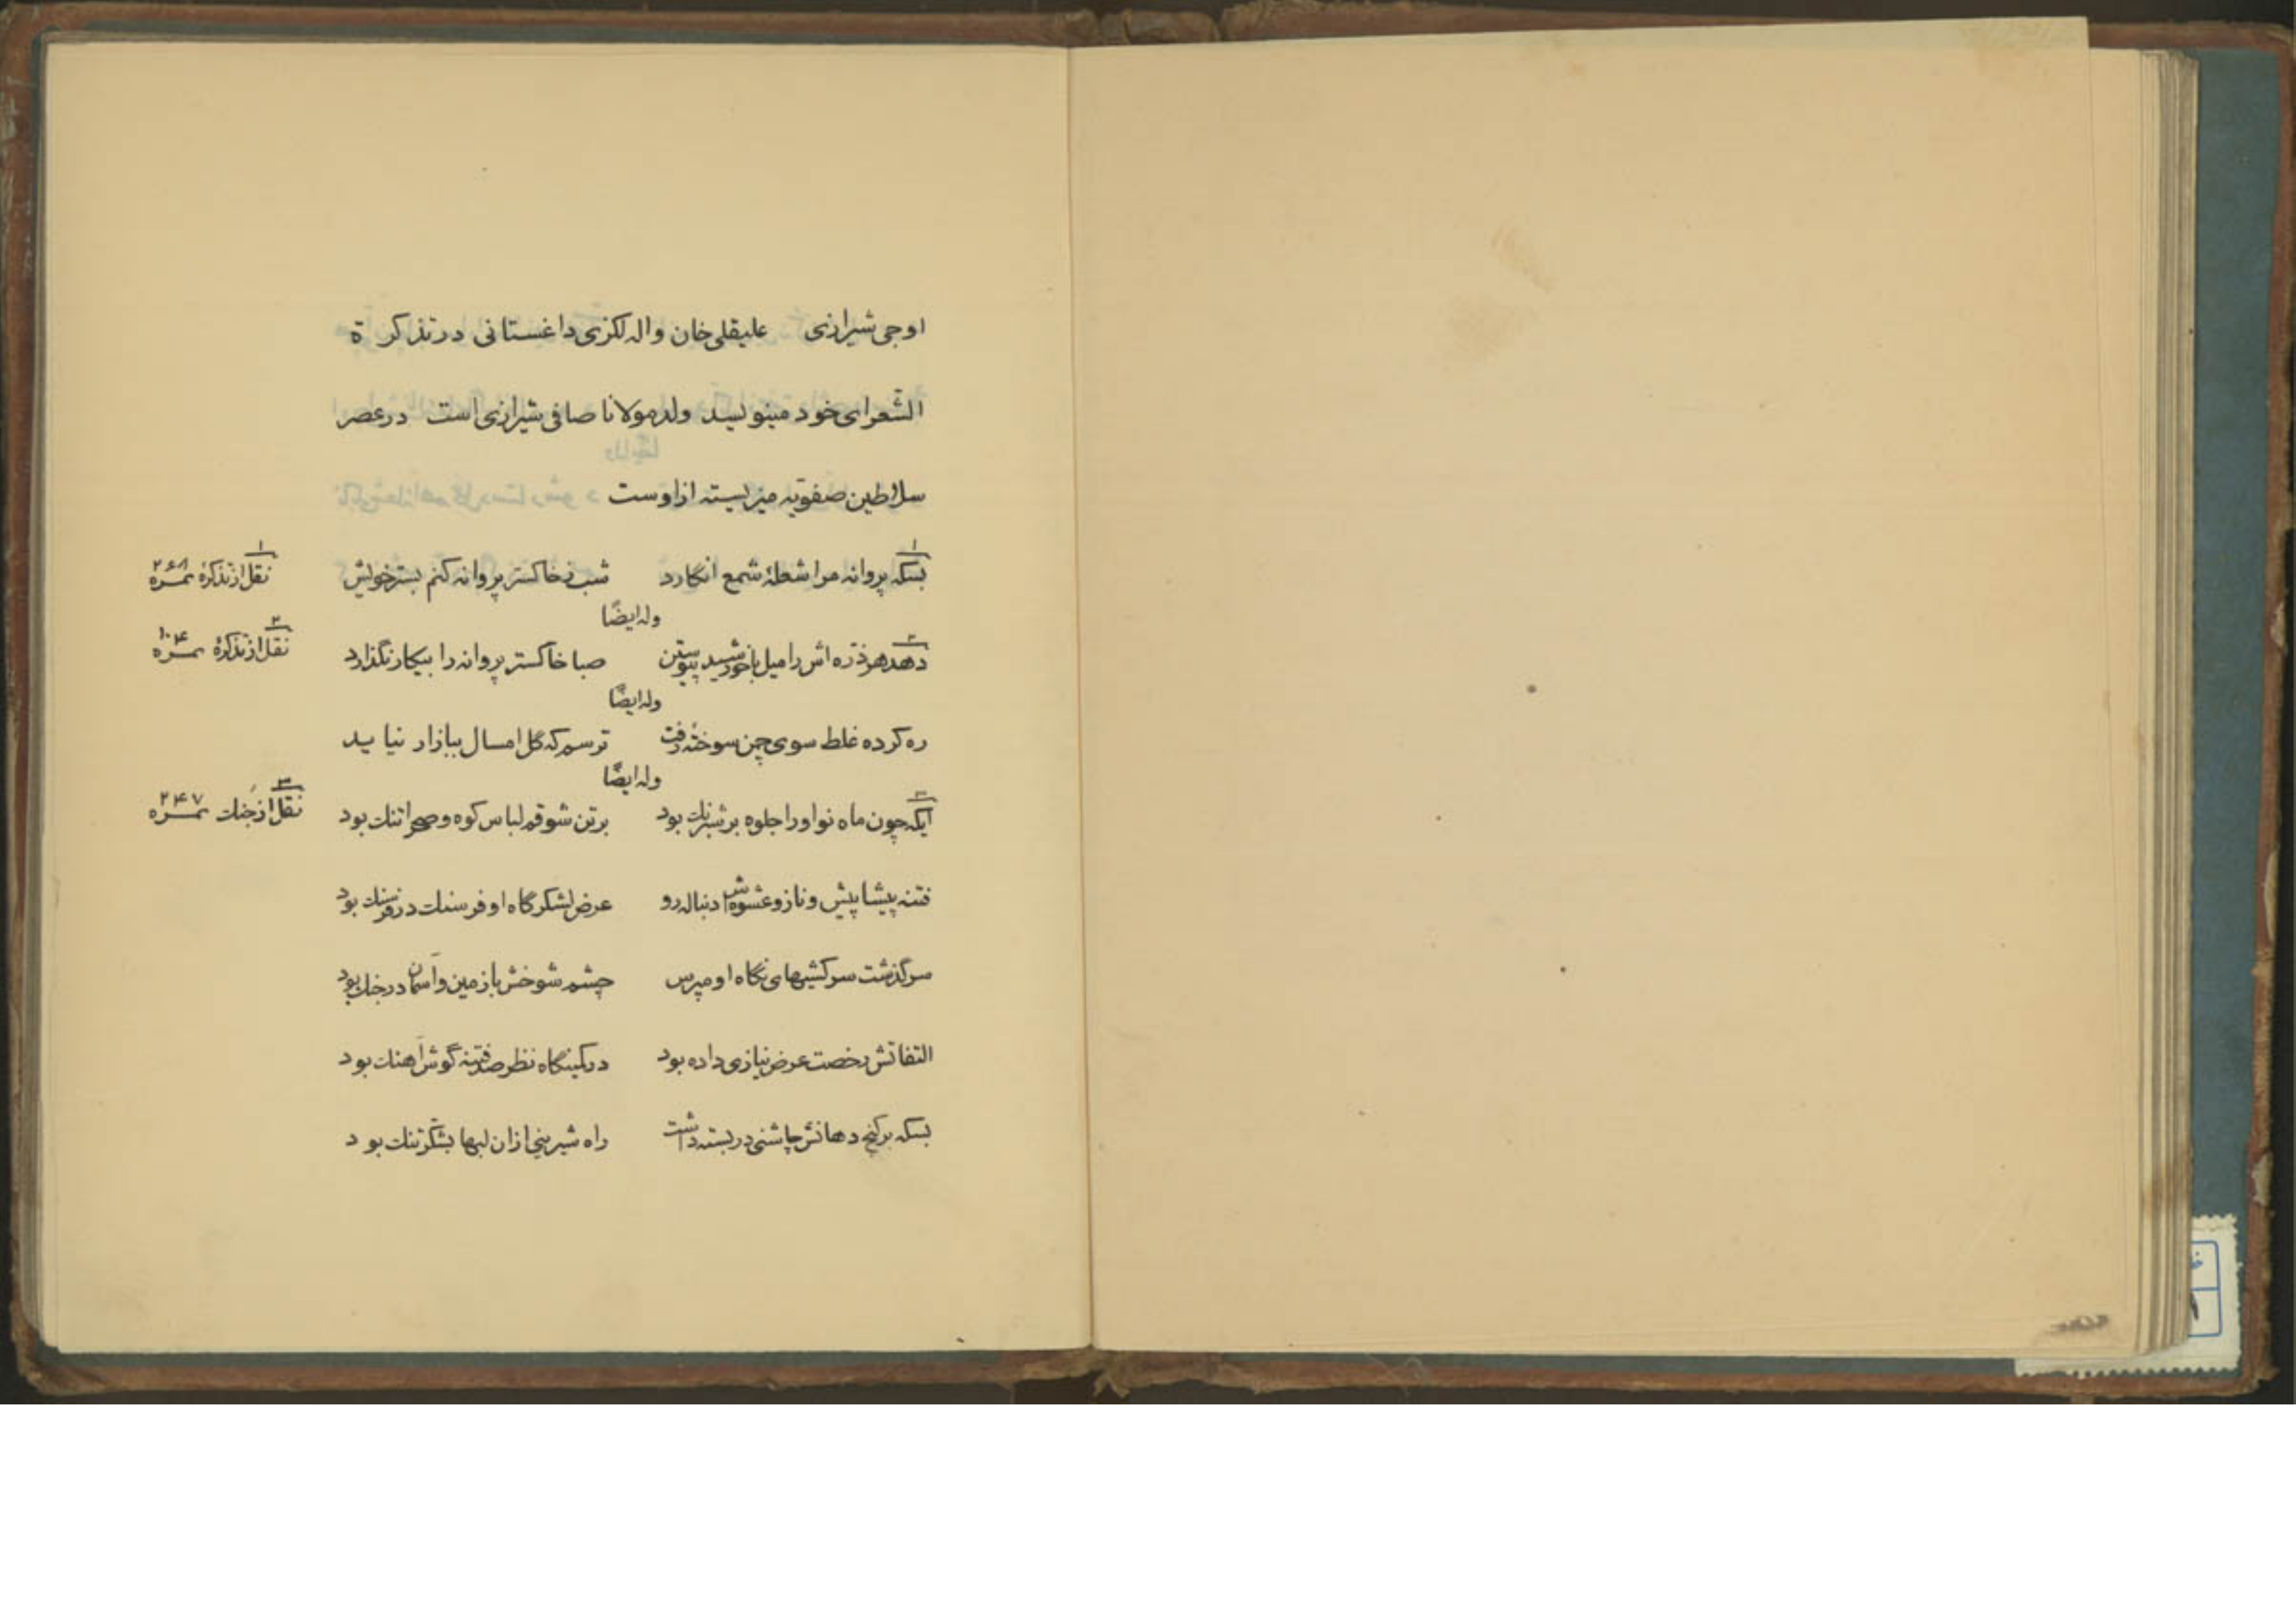 اوجی شیرازی علیقلی خان واله لکزی داغستانی در تذکرة
الشعرای خود مینویسد ولد مولانا صافی شیرازی است در عصر
سلاطین صفویه میزیسته از اوست
۱ بسکه پروانه مرا شعلهٔ شمع انگارد شب ز خاکستر پروانه کنم بستر خویش ۱ نقل از تذکرهٔ نمره ۲۶۸
وله ایضًا
۲ دهد هر ذره اش را میل با خورشید پیوستن صبا خاکستر پروانه را بیکار نگذارد ۲ نقل از تذکرهٔ نمره ۱۰۴
وله ایضًا
ره کرده غلط سوی چمن سوخته رفت ترسم که گل امسال ببازار نیاید
وله ایضًا
۳ آیکه چون ماه نو اورا جلوه بر شبرنك بود بر تن شوقم لباس کوه و صحرا تنك بود ۳ نقل از جنك نمره ۲۴۷
فتنه پیشاپیش و ناز و عشوه اش دنباله رو عرض لشکرگاه او فرسنك در فرسنك بود
سرگذشت سرکشیهای نگاه او مپرس چشم شوخش با زمین و آسمان در جنك بود
التفاتش رخصت عرض نیازی داده بود در کمینگاه نظر صد فتنه گوش آهنك بود
بسکه بر کنج دهانش چاشنی در بسته داشت راه شیرینی ازان لبها بشکر تنك بود